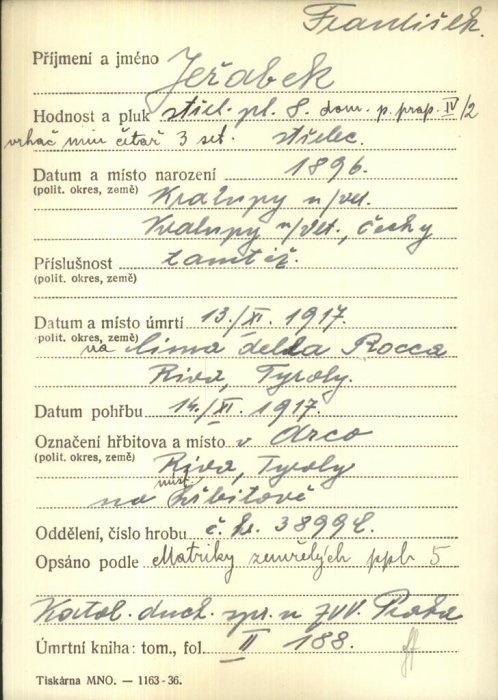 František.
Příjmení a jméno Jeřábek
Hodnost a pluk střel. pl. 8. dom. p. prap. IV/2
vrhač min četař 3 set. střelec.
Datum a místo narození 1896.
(polit. okres, země) Kralupy n/vlt.
Kralupy n/vlt., čechy
Příslušnost tamtéž.
(polit. okres, země)
Datum a místo úmrtí 13./XI. 1917.
(polit. okres, země) na Cima della Rocca
Riva, Tyroly.
Datum pohřbu 14./XI. 1917.
Označení hřbitova a místo v Arco
(polit. okres, země) Riva, Tyroly
míst.
na hřbitově
Oddělení, číslo hrobu č. h. 3899
Opsáno podle Matriky zemřelých ppl. 5
Katol. duch. spr. u ZVV. Praha
Úmrtní kniha: tom., fol. II 188.
Tiskárna MNO. — 1163-36.